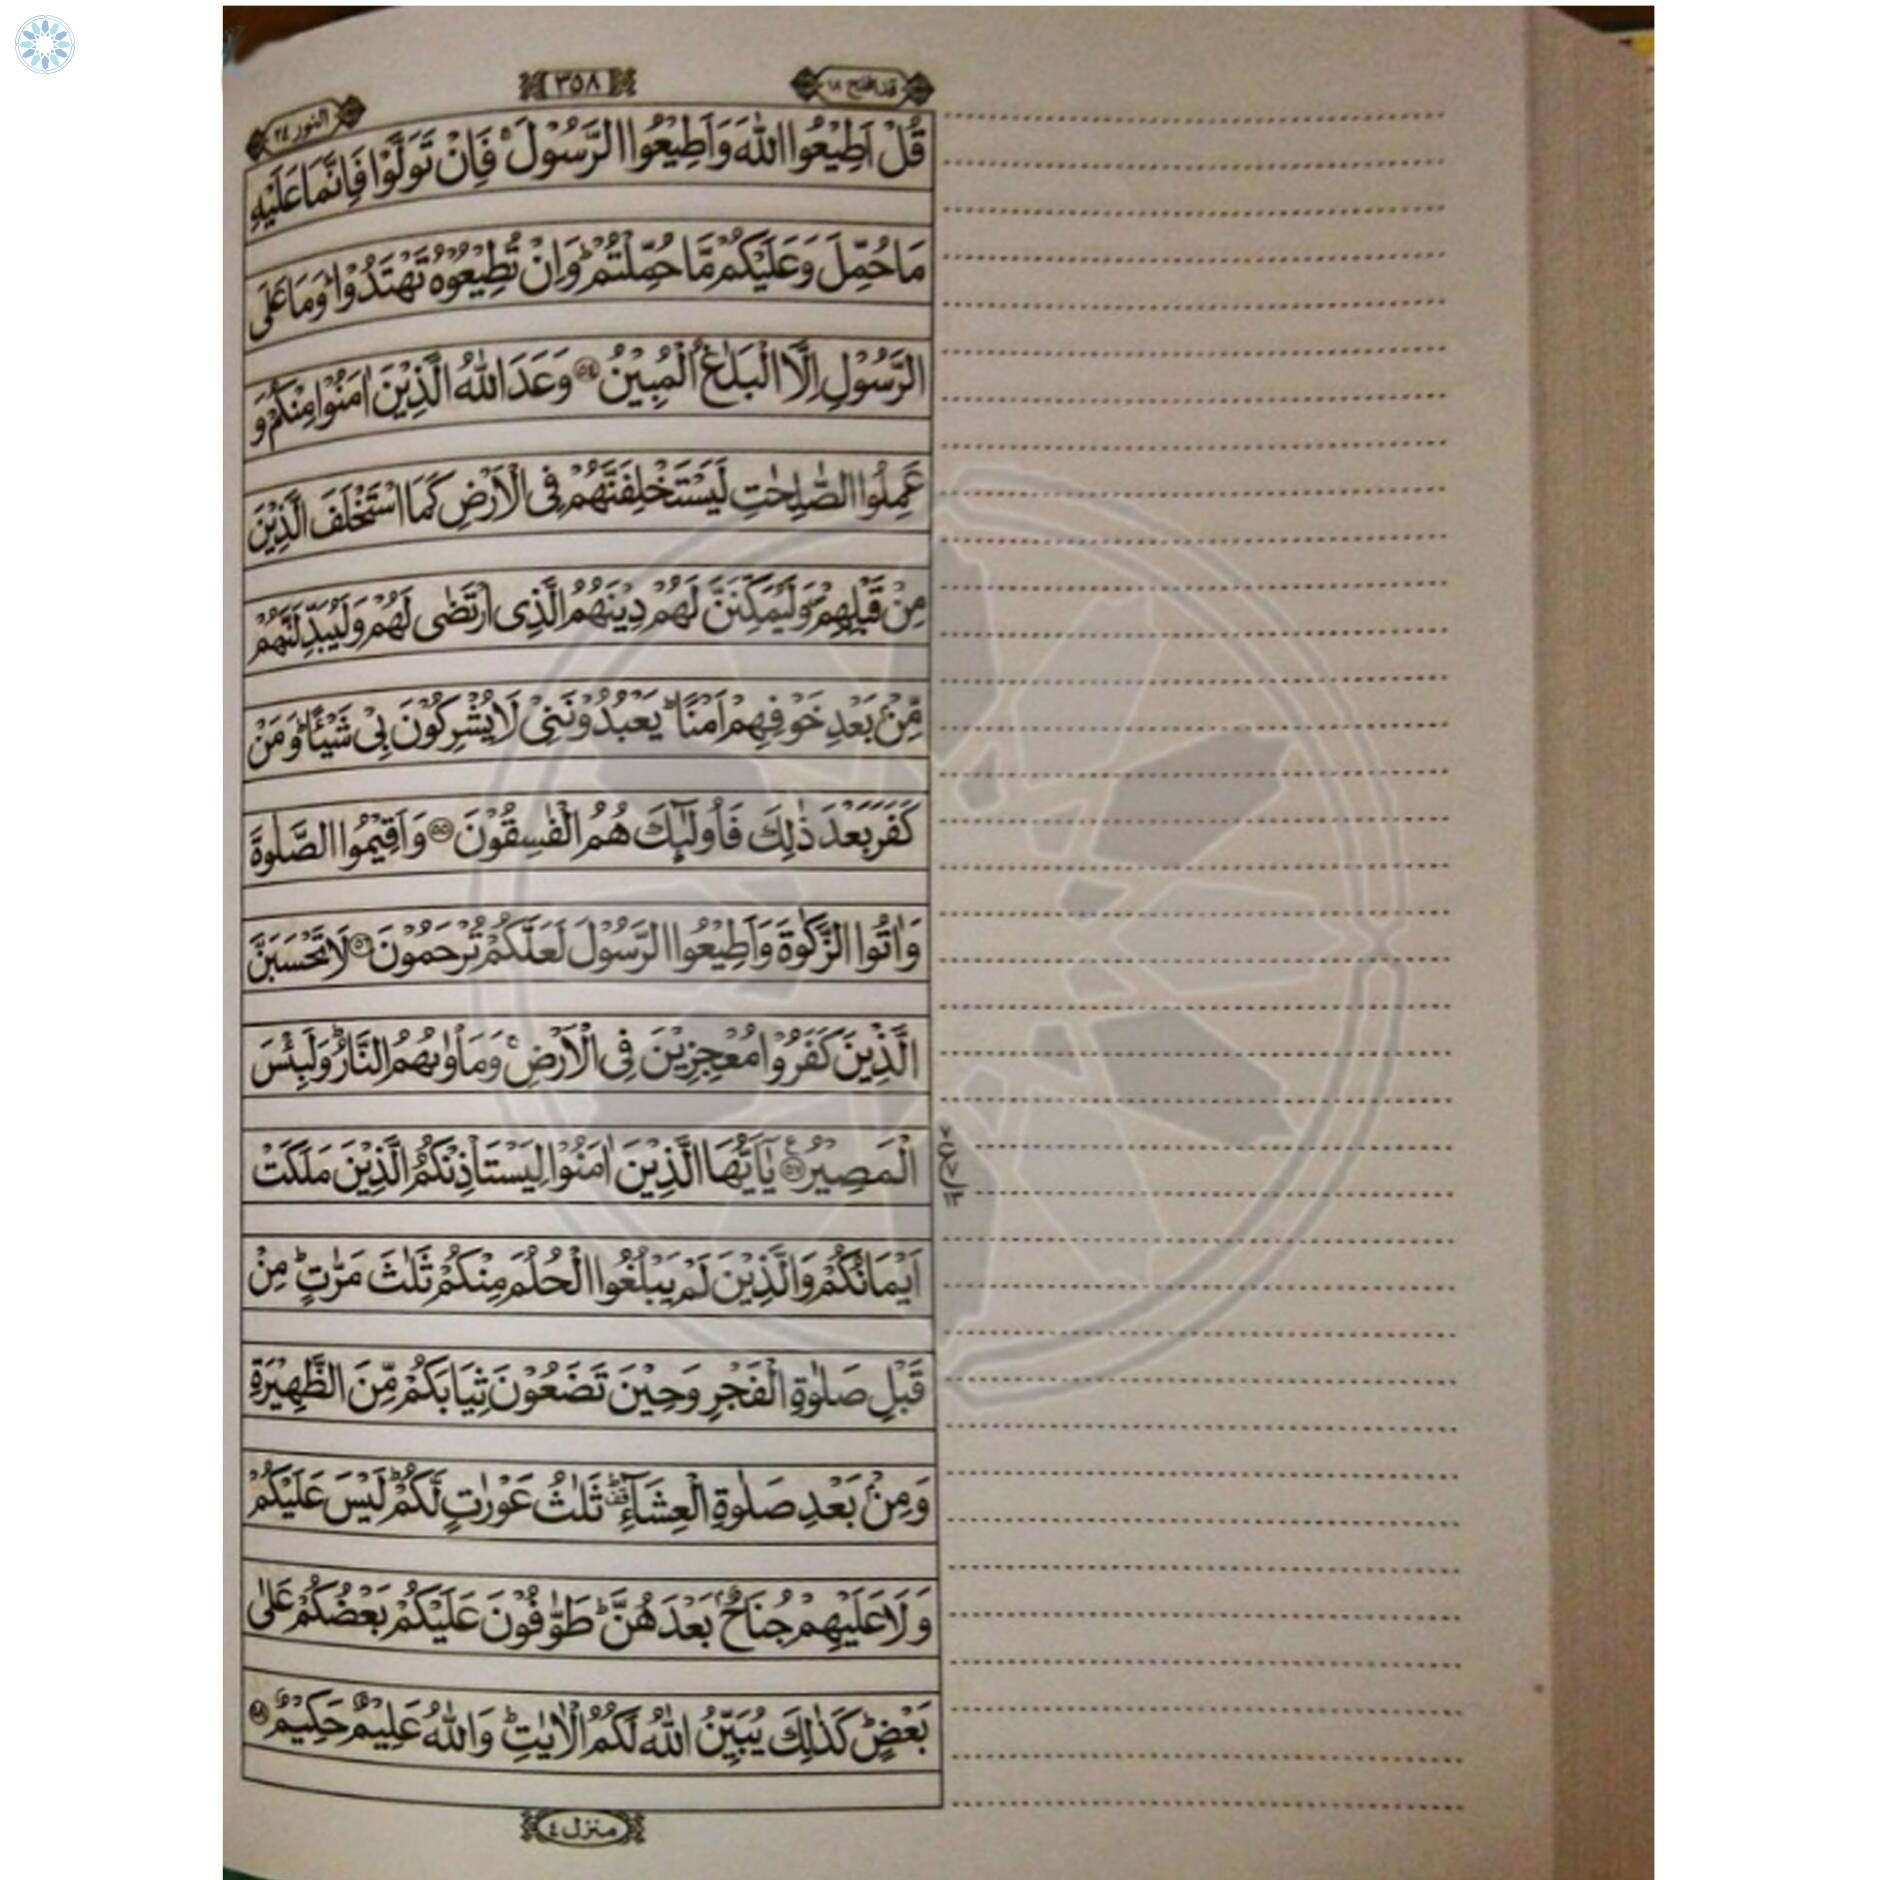 قد افلح ١٨
٣٥٨
النور ٢٤
قُلْ اَطِيْعُوا اللّٰهَ وَاَطِيْعُوا الرَّسُوْلَ ۚ فَاِنْ تَوَلَّوْا فَاِنَّمَا عَلَيْهِ
مَا حُمِّلَ وَعَلَيْكُمْ مَّا حُمِّلْتُمْ ؕ وَاِنْ تُطِيْعُوْهُ تَهْتَدُوْا ؕ وَمَا عَلَى
الرَّسُوْلِ اِلَّا الْبَلٰغُ الْمُبِيْنُ ﴿۵۴﴾ وَعَدَ اللّٰهُ الَّذِيْنَ اٰمَنُوْا مِنْكُمْ وَ
عَمِلُوا الصّٰلِحٰتِ لَيَسْتَخْلِفَنَّهُمْ فِى الْاَرْضِ كَمَا اسْتَخْلَفَ الَّذِيْنَ
مِنْ قَبْلِهِمْ ۪ وَلَيُمَكِّنَنَّ لَهُمْ دِيْنَهُمُ الَّذِى ارْتَضٰى لَهُمْ وَلَيُبَدِّلَنَّهُمْ
مِّنْۢ بَعْدِ خَوْفِهِمْ اَمْنًا ؕ يَعْبُدُوْنَنِىْ لَا يُشْرِكُوْنَ بِىْ شَيْـًٔا ؕ وَمَنْ
كَفَرَ بَعْدَ ذٰلِكَ فَاُولٰٓئِكَ هُمُ الْفٰسِقُوْنَ ﴿۵۵﴾ وَاَقِيْمُوا الصَّلٰوةَ
وَاٰتُوا الزَّكٰوةَ وَاَطِيْعُوا الرَّسُوْلَ لَعَلَّكُمْ تُرْحَمُوْنَ ﴿۵۶﴾ لَا تَحْسَبَنَّ
الَّذِيْنَ كَفَرُوْا مُعْجِزِيْنَ فِى الْاَرْضِ ۚ وَمَاْوٰىهُمُ النَّارُ ؕ وَلَبِئْسَ
الْمَصِيْرُ ﴿۵۷﴾ ع يٰۤاَيُّهَا الَّذِيْنَ اٰمَنُوْا لِيَسْتَاْذِنْكُمُ الَّذِيْنَ مَلَكَتْ
٧ ع ٧ ١٣
اَيْمَانُكُمْ وَالَّذِيْنَ لَمْ يَبْلُغُوا الْحُلُمَ مِنْكُمْ ثَلٰثَ مَرّٰتٍ ؕ مِنْ
قَبْلِ صَلٰوةِ الْفَجْرِ وَحِيْنَ تَضَعُوْنَ ثِيَابَكُمْ مِّنَ الظَّهِيْرَةِ
وَمِنْۢ بَعْدِ صَلٰوةِ الْعِشَآءِ ؕ قف ثَلٰثُ عَوْرٰتٍ لَّكُمْ ؕ لَيْسَ عَلَيْكُمْ
وَلَا عَلَيْهِمْ جُنَاحٌۢ بَعْدَهُنَّ ؕ طَوّٰفُوْنَ عَلَيْكُمْ بَعْضُكُمْ عَلٰى
بَعْضٍ ؕ كَذٰلِكَ يُبَيِّنُ اللّٰهُ لَكُمُ الْاٰيٰتِ ؕ وَاللّٰهُ عَلِيْمٌ حَكِيْمٌ ﴿۵۸﴾
منزل ٤